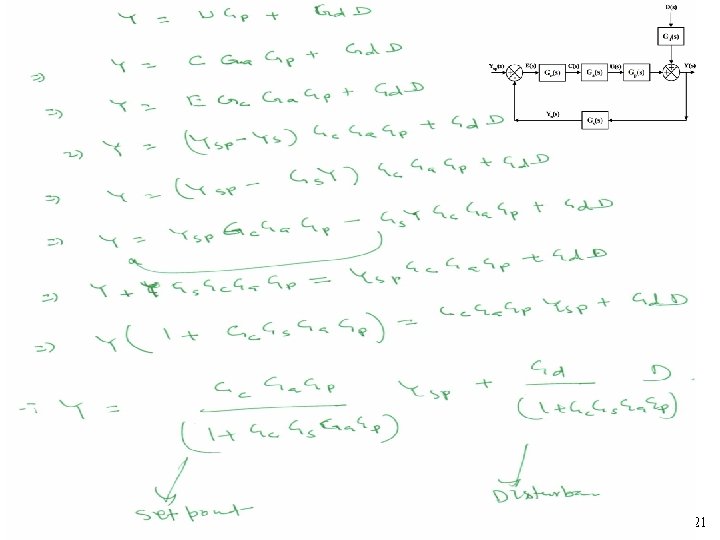 Y = U Gp + Gd D
⇒ Y = C Ga Gp + Gd D
⇒ Y = E Gc Ga Gp + Gd D
⇒ Y = (Ysp - Ys) Gc Ga Gp + Gd D
⇒ Y = (Ysp - Gs Y) Gc Ga Gp + Gd D
⇒ Y = Ysp Gc Ga Gp - Gs Y Gc Ga Gp + Gd D
⇒ Y + Y Gs Gc Ga Gp = Ysp Gc Ga Gp + Gd D
⇒ Y (1 + Gc Gs Ga Gp) = Gc Ga Gp Ysp + Gd D
∴ Y = Gc Ga Gp / (1 + Gc Gs Ga Gp) Ysp + Gd / (1 + Gc Gs Ga Gp) D
Setpoint Disturban
D(s)
Gd(s)
Ysp(s) E(s) Gc(s) C(s) Ga(s) U(s) Gp(s) Y(s)
Ys(s)
Gs(s)
21